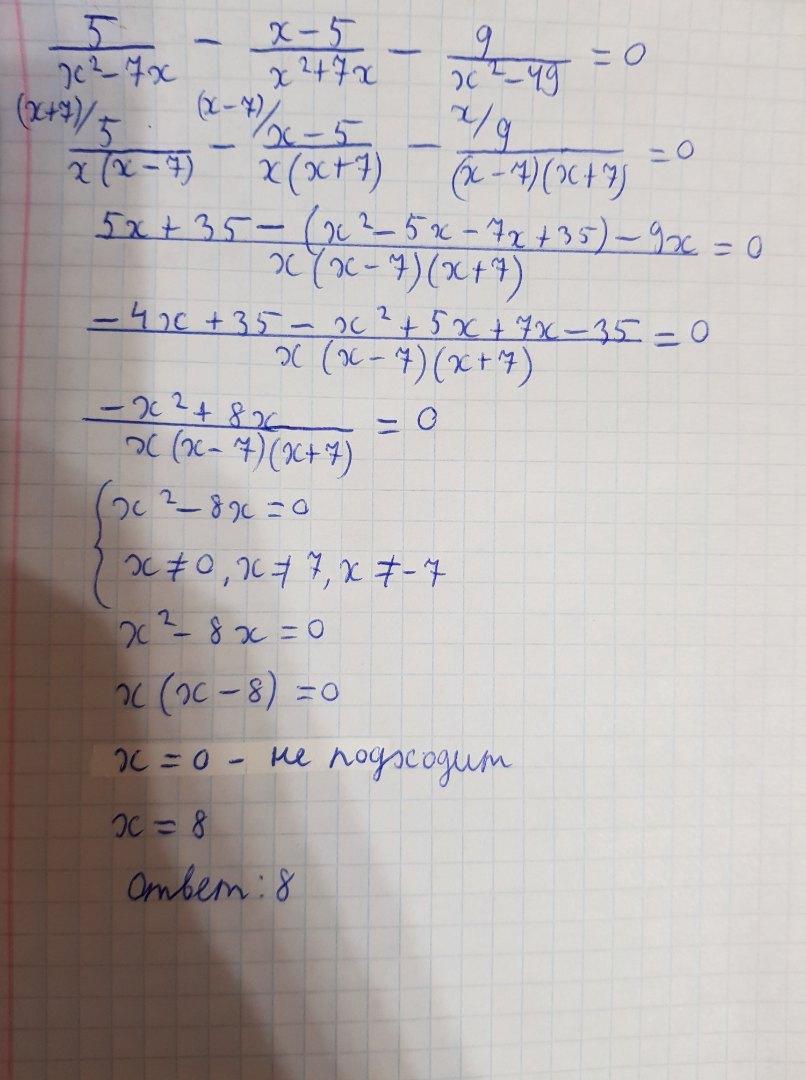 5/(x²-7x) - (x-5)/(x²+7x) - 9/(x²-49) = 0
(x+7)/ 5/(x(x-7)) - (x-7)/ (x-5)/(x(x+7)) - x/ 9/((x-7)(x+7)) = 0
(5x+35-(x²-5x-7x+35)-9x)/(x(x-7)(x+7)) = 0
(-4x+35-x²+5x+7x-35)/(x(x-7)(x+7)) = 0
(-x²+8x)/(x(x-7)(x+7)) = 0
{x²-8x=0
x≠0, x≠7, x≠-7
x²-8x=0
x(x-8)=0
x=0 - не подходит
x=8
Ответ: 8